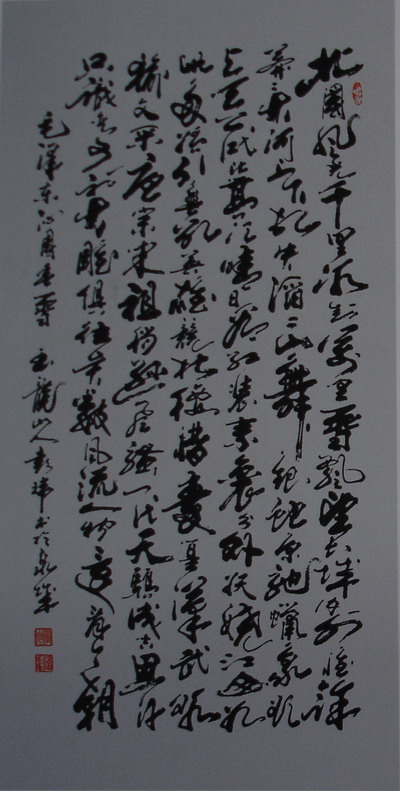 北國風光千里冰封萬里雪飄望長城内外惟餘
莽莽大河上下頓失滔滔山舞銀蛇原馳蠟象欲
與天公試比高須晴日看紅裝素裹分外妖嬈江山如
此多嬌引無數英雄競折腰惜秦皇漢武略
輸文采唐宗宋祖稍遜風騷一代天驕成吉思汗
只識彎弓射大雕俱往矣數風流人物還看今朝
毛澤東沁園春雪 玉龍山人書於泉城